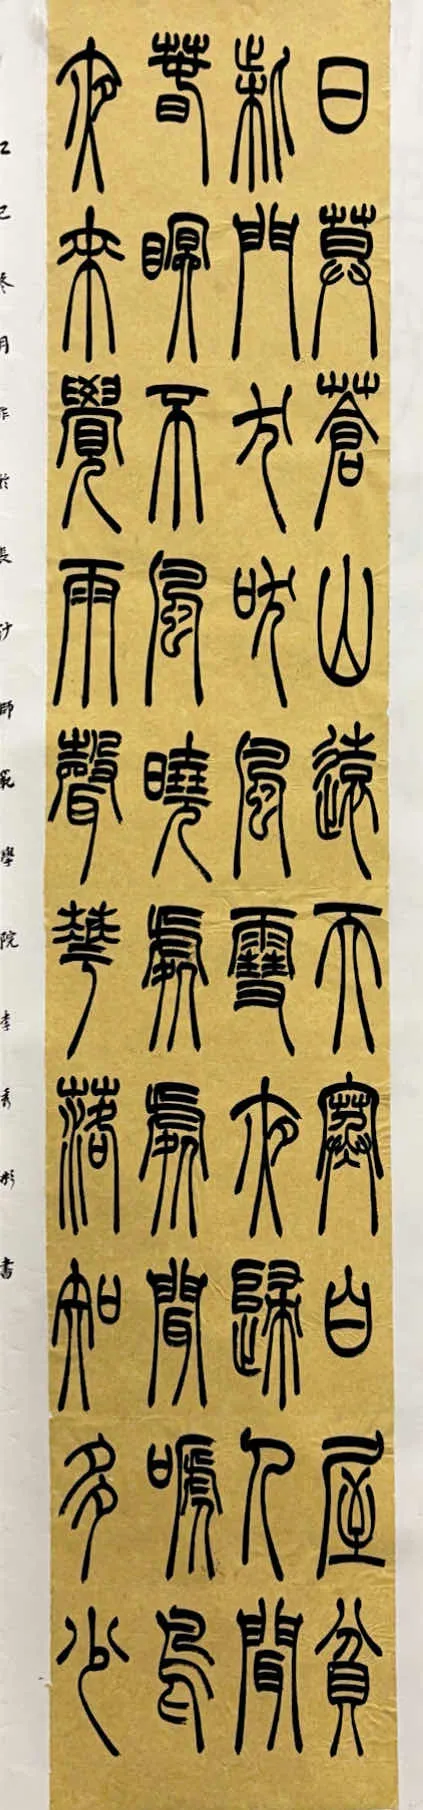 日暮蒼山遠天寒白屋貧
柴門犬吠風雪夜歸人聞
春眠不風曉處處聞嗁鳥
夜來覺雨聲華落知多少
乙巳冬月作於長沙師範學院李秀書